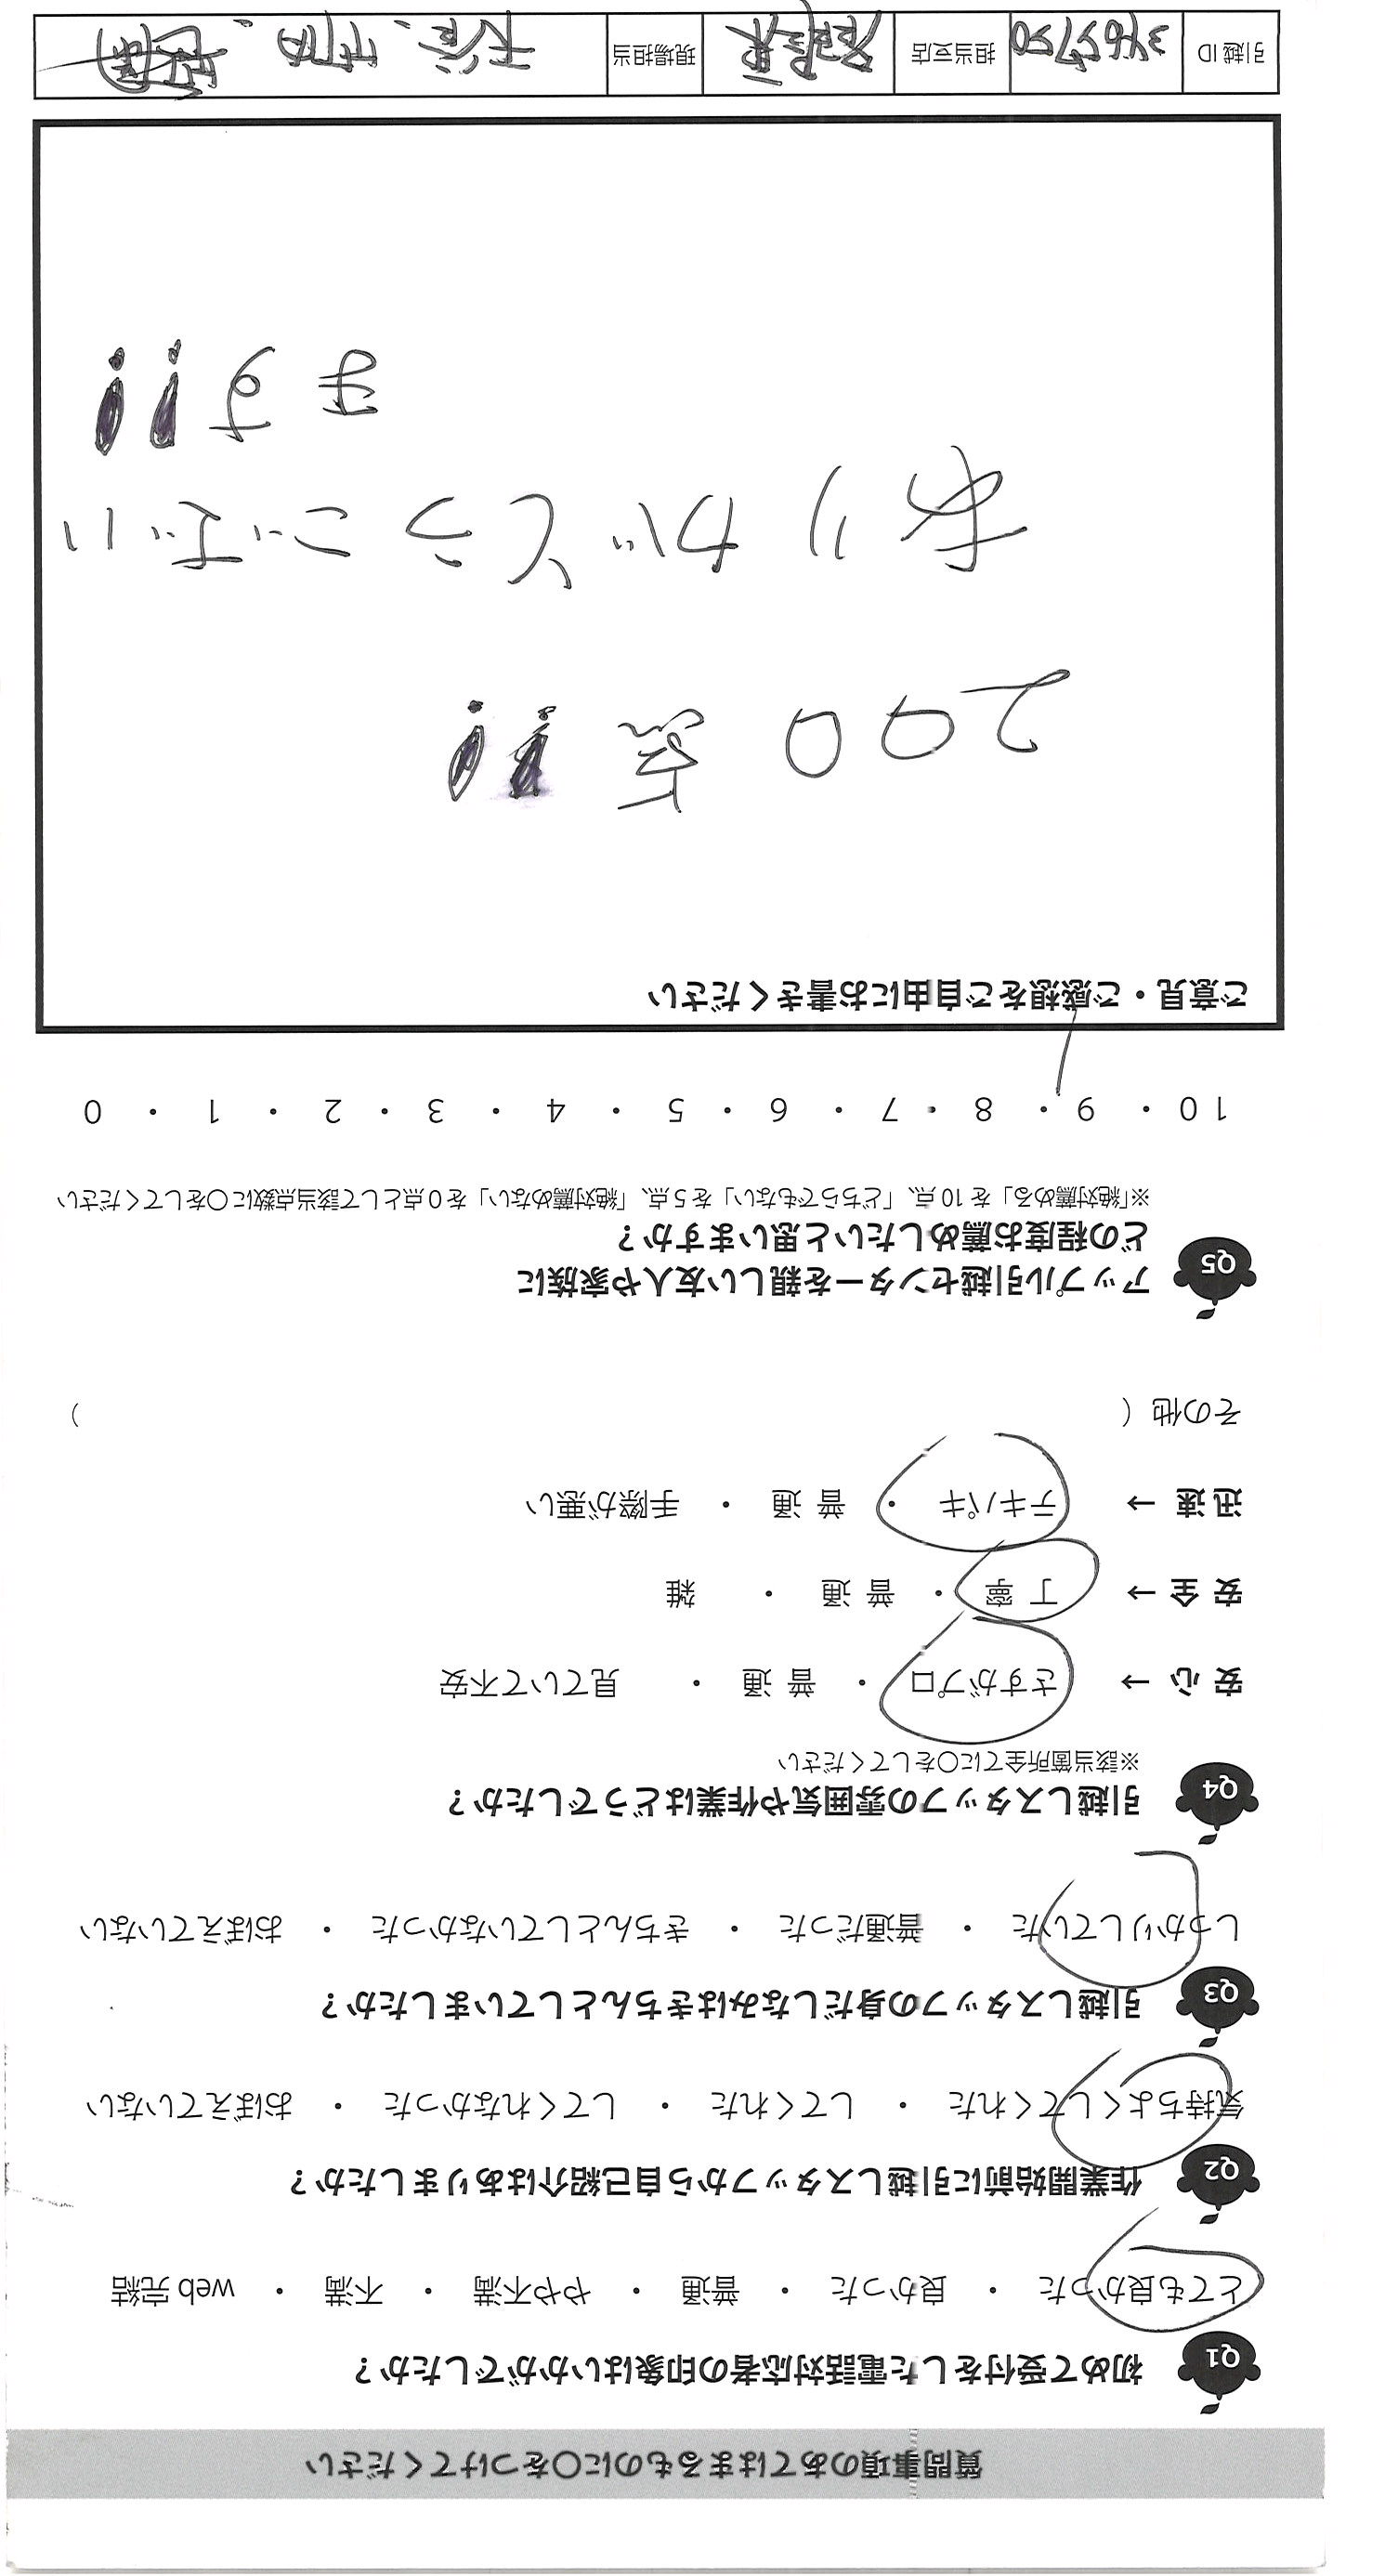 質問事項のあてはまるものに〇をつけてください
Q1 初めて受付をした電話対応者の印象はいかがでしたか？
とても良かった ・ 良かった ・ 普通 ・ やや不満 ・ 不満 ・ web 完結
Q2 作業開始前に引越しスタッフから自己紹介はありましたか？
気持ちよくしてくれた ・ してくれた ・ してくれなかった ・ おぼえていない
Q3 引越しスタッフの身だしなみはきちんとしていましたか？
しっかりしていた ・ 普通だった ・ きちんとしていなかった ・ おぼえていない
Q4 引越しスタッフの雰囲気や作業はどうでしたか？
※該当箇所全てに〇をしてください
安 心 → さすがプロ ・ 普 通 ・ 見ていて不安
安 全 → 丁 寧 ・ 普 通 ・ 雑
迅 速 → テキパキ ・ 普 通 ・ 手際が悪い
その他（ ）
Q5 アップル引越センターを親しい友人や家族に
どの程度お薦めしたいと思いますか？
※「絶対薦める」を 10 点、「どちらでもない」を 5 点、「絶対薦めない」を 0 点として該当点数に〇をしてください
10 ・ 9 ・ 8 ・ 7 ・ 6 ・ 5 ・ 4 ・ 3 ・ 2 ・ 1 ・ 0
ご意見・ご感想をご自由にお書きください
200点!!
ありがとうございい
ます!!
引越 ID 担当支店 現場担当